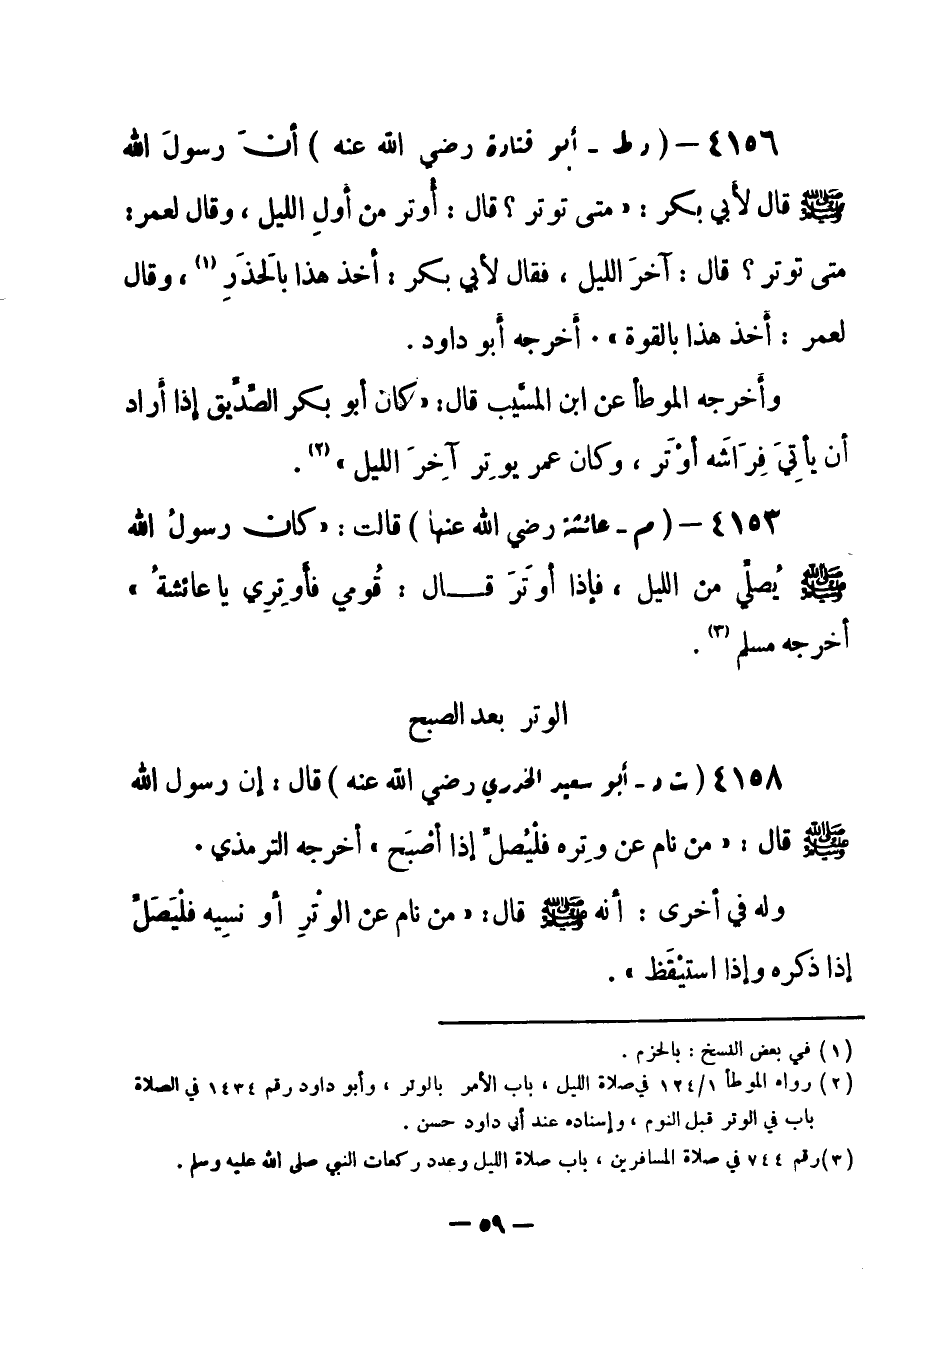 ٤١٥٦ – ( د ط - أبو قتادة رضي الله عنه ) أنَّ رسولَ الله
ﷺ قال لأبي بكر : « متى توتر ؟ قال : أُوتر من أولِ الليل ، وقال لعمر:
متى توتر ؟ قال : آخرَ الليل ، فقال لأبي بكر : أخذ هذا بالَحذَرِ (١) ، وقال
لعمر : أَخذ هذا بالقوة » . أَخرجه أَبو داود .
وأَخرجه الموطأ عن ابن المسَّيب قال: « كان أبو بكر الصِّدِّيق إذا أَراد
أن يأتيَ فِرَاشَه أوْتَر ، وكان عمر يوتِر آخِرَ الليل » (٢) .
٤١٥٣ – ( م - عائشة رضي الله عنها ) قالت : « كان رسولُ الله
ﷺ يُصلِّي من الليل ، فإذا أوتَرَ قـــال : قُومي فأَوتِرِي يا عائشةُ »
أخرجه مسلم (٣) .
الوتر بعد الصبح
٤١٥٨ ( ت د - أبو سعيد الخدري رضي الله عنه ) قال : إن رسول الله
ﷺ قال : « من نام عن وِتره فلْيُصلِّ إذا أصْبَح » أخرجه الترمذي .
وله في أخرى : أنه ﷺ قال: « من نام عن الوْترِ أو نسِيه فلْيَصَلِّ
إذا ذكره وإذا استيْقَظ » .
(١) في بعض النسخ : بالحزم .
(٢) رواه الموطأ ١٢٤/١ في صلاة الليل ، باب الأمر بالوتر ، وأبو داود رقم ١٤٣٤ في الصلاة
باب في الوتر قبل النوم ، وإسناده عند أبي داود حسن .
(٣) رقم ٧٤٤ في صلاة المسافرين ، باب صلاة الليل وعدد ركعات النبي صلى الله عليه وسلم .
– ٥٩ –